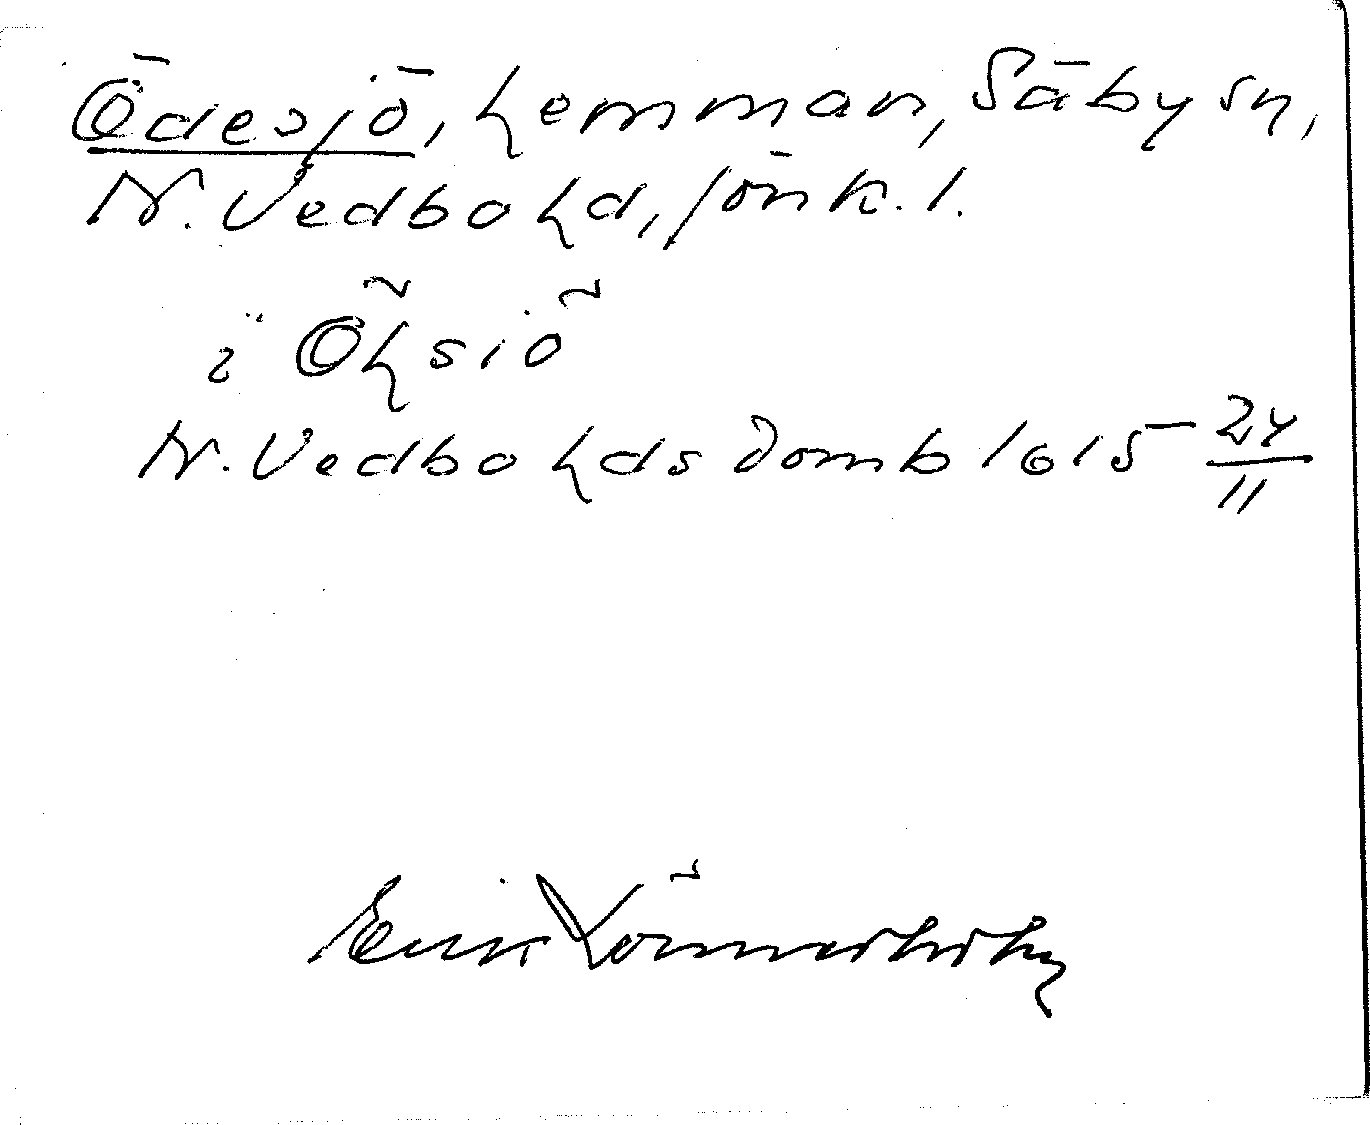 Ödesjö, hemman, Säby sn,
N. Vedbo hd, Jönk. l.
i Öhsiö
N. Vedbo hds domb 1615 24/11
Erik